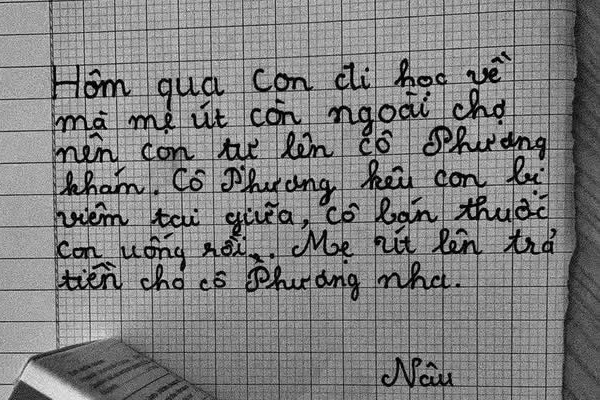 Hôm qua con đi học về
mà mẹ út còn ngoài chợ
nên con tự lên cô Phương
khám. Cô Phương kêu con bị
viêm tai giữa, cô bán thuốc
con uống rồi. Mẹ út lên trả
tiền cho cô Phương nha.
Nâu